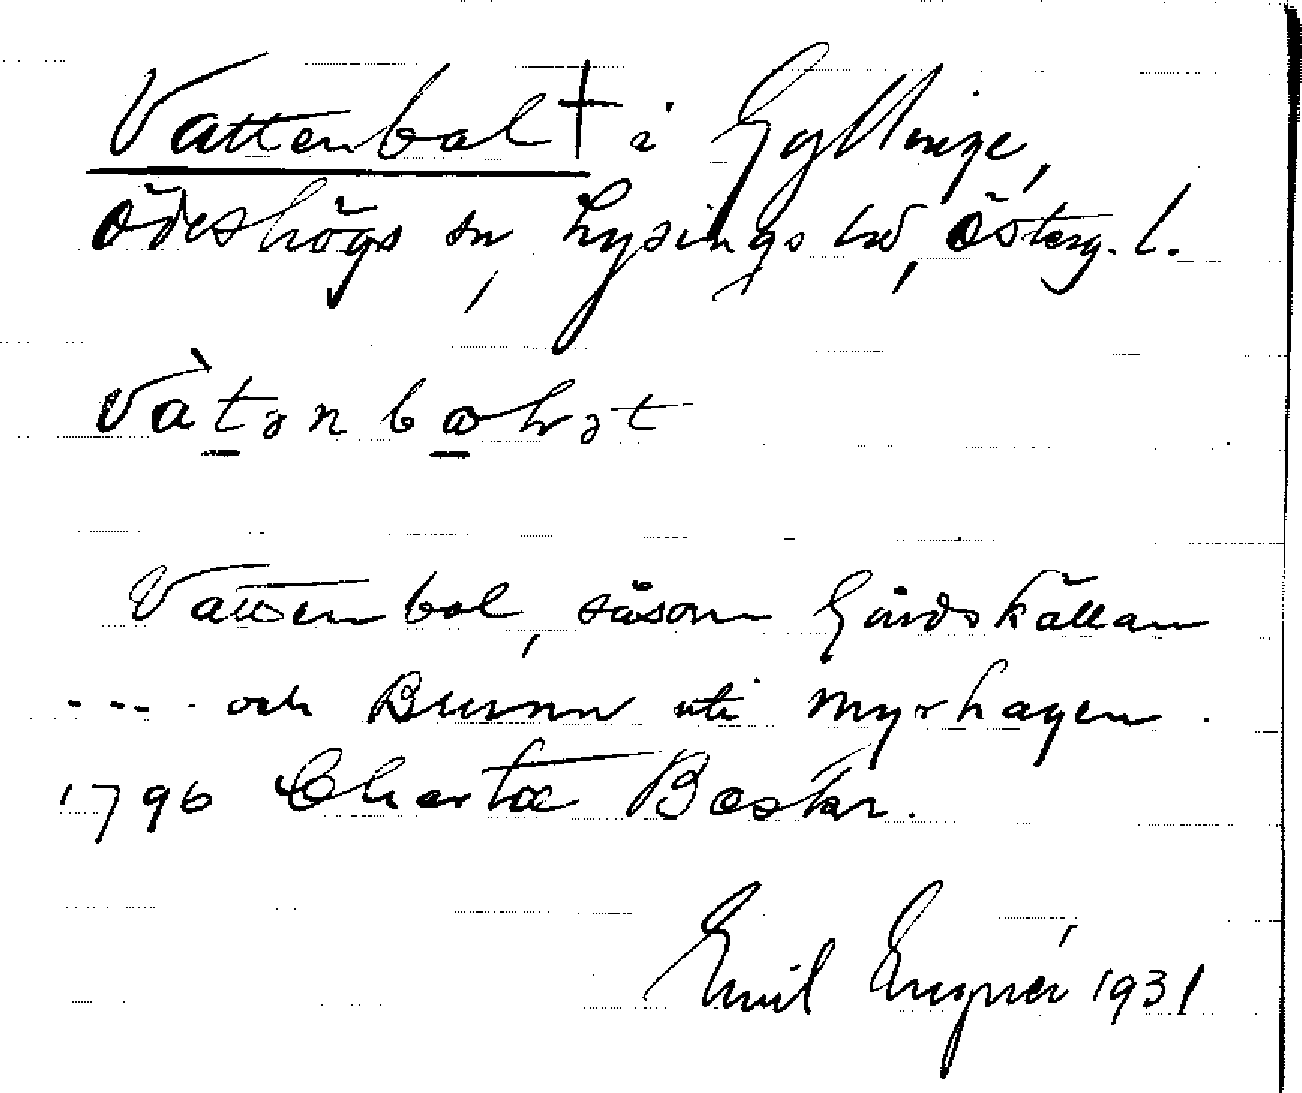 Vattenbal † i Gyllinge,
Ödeshögs sn, Lysings hd, Österg. l.
Vattenbal, såsom Gårdskällan
---- och Brunn uti Myrhagen.
1796 Charta Beskr.
Emil Engnér 1931